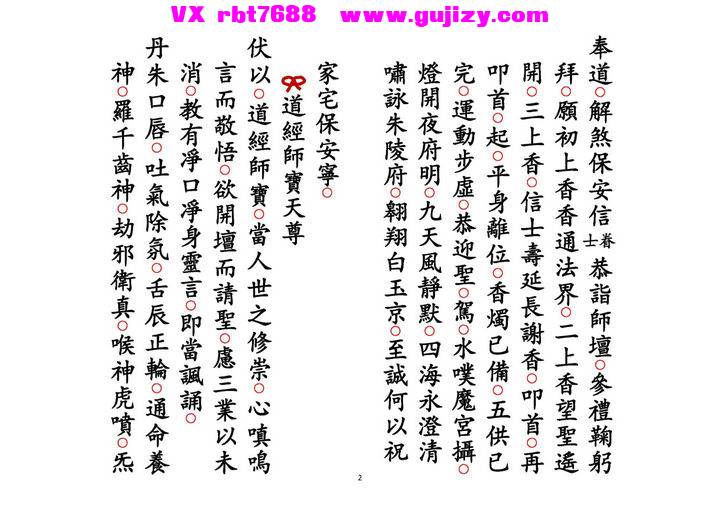 VX rbt7688 www.gujizy.com
奉道○解煞保安信士眷恭詣師壇○參禮鞠躬
拜○願初上香香通法界○二上香望聖遙
開○三上香○信士壽延長謝香○叩首○再
叩首○起○平身離位○香燭已備○五供已
完○運動步虛○恭迎聖○駕○水噗魔宮攝○
燈開夜府明○九天風靜默○四海永澄清
嘯詠朱陵府○翱翔白玉京○至誠何以祝
家宅保安寧○
道經師寶天尊
伏以○道經師寶○當人世之修崇○心嗔鳴
言而敬悟○欲開壇而請聖○慮三業以未
消○教有淨口淨身靈言○即當諷誦○
丹朱口唇○吐氣除氛○舌辰正輪○通命養
神○羅千齒神○劫邪衛真○喉神虎噴○炁
2